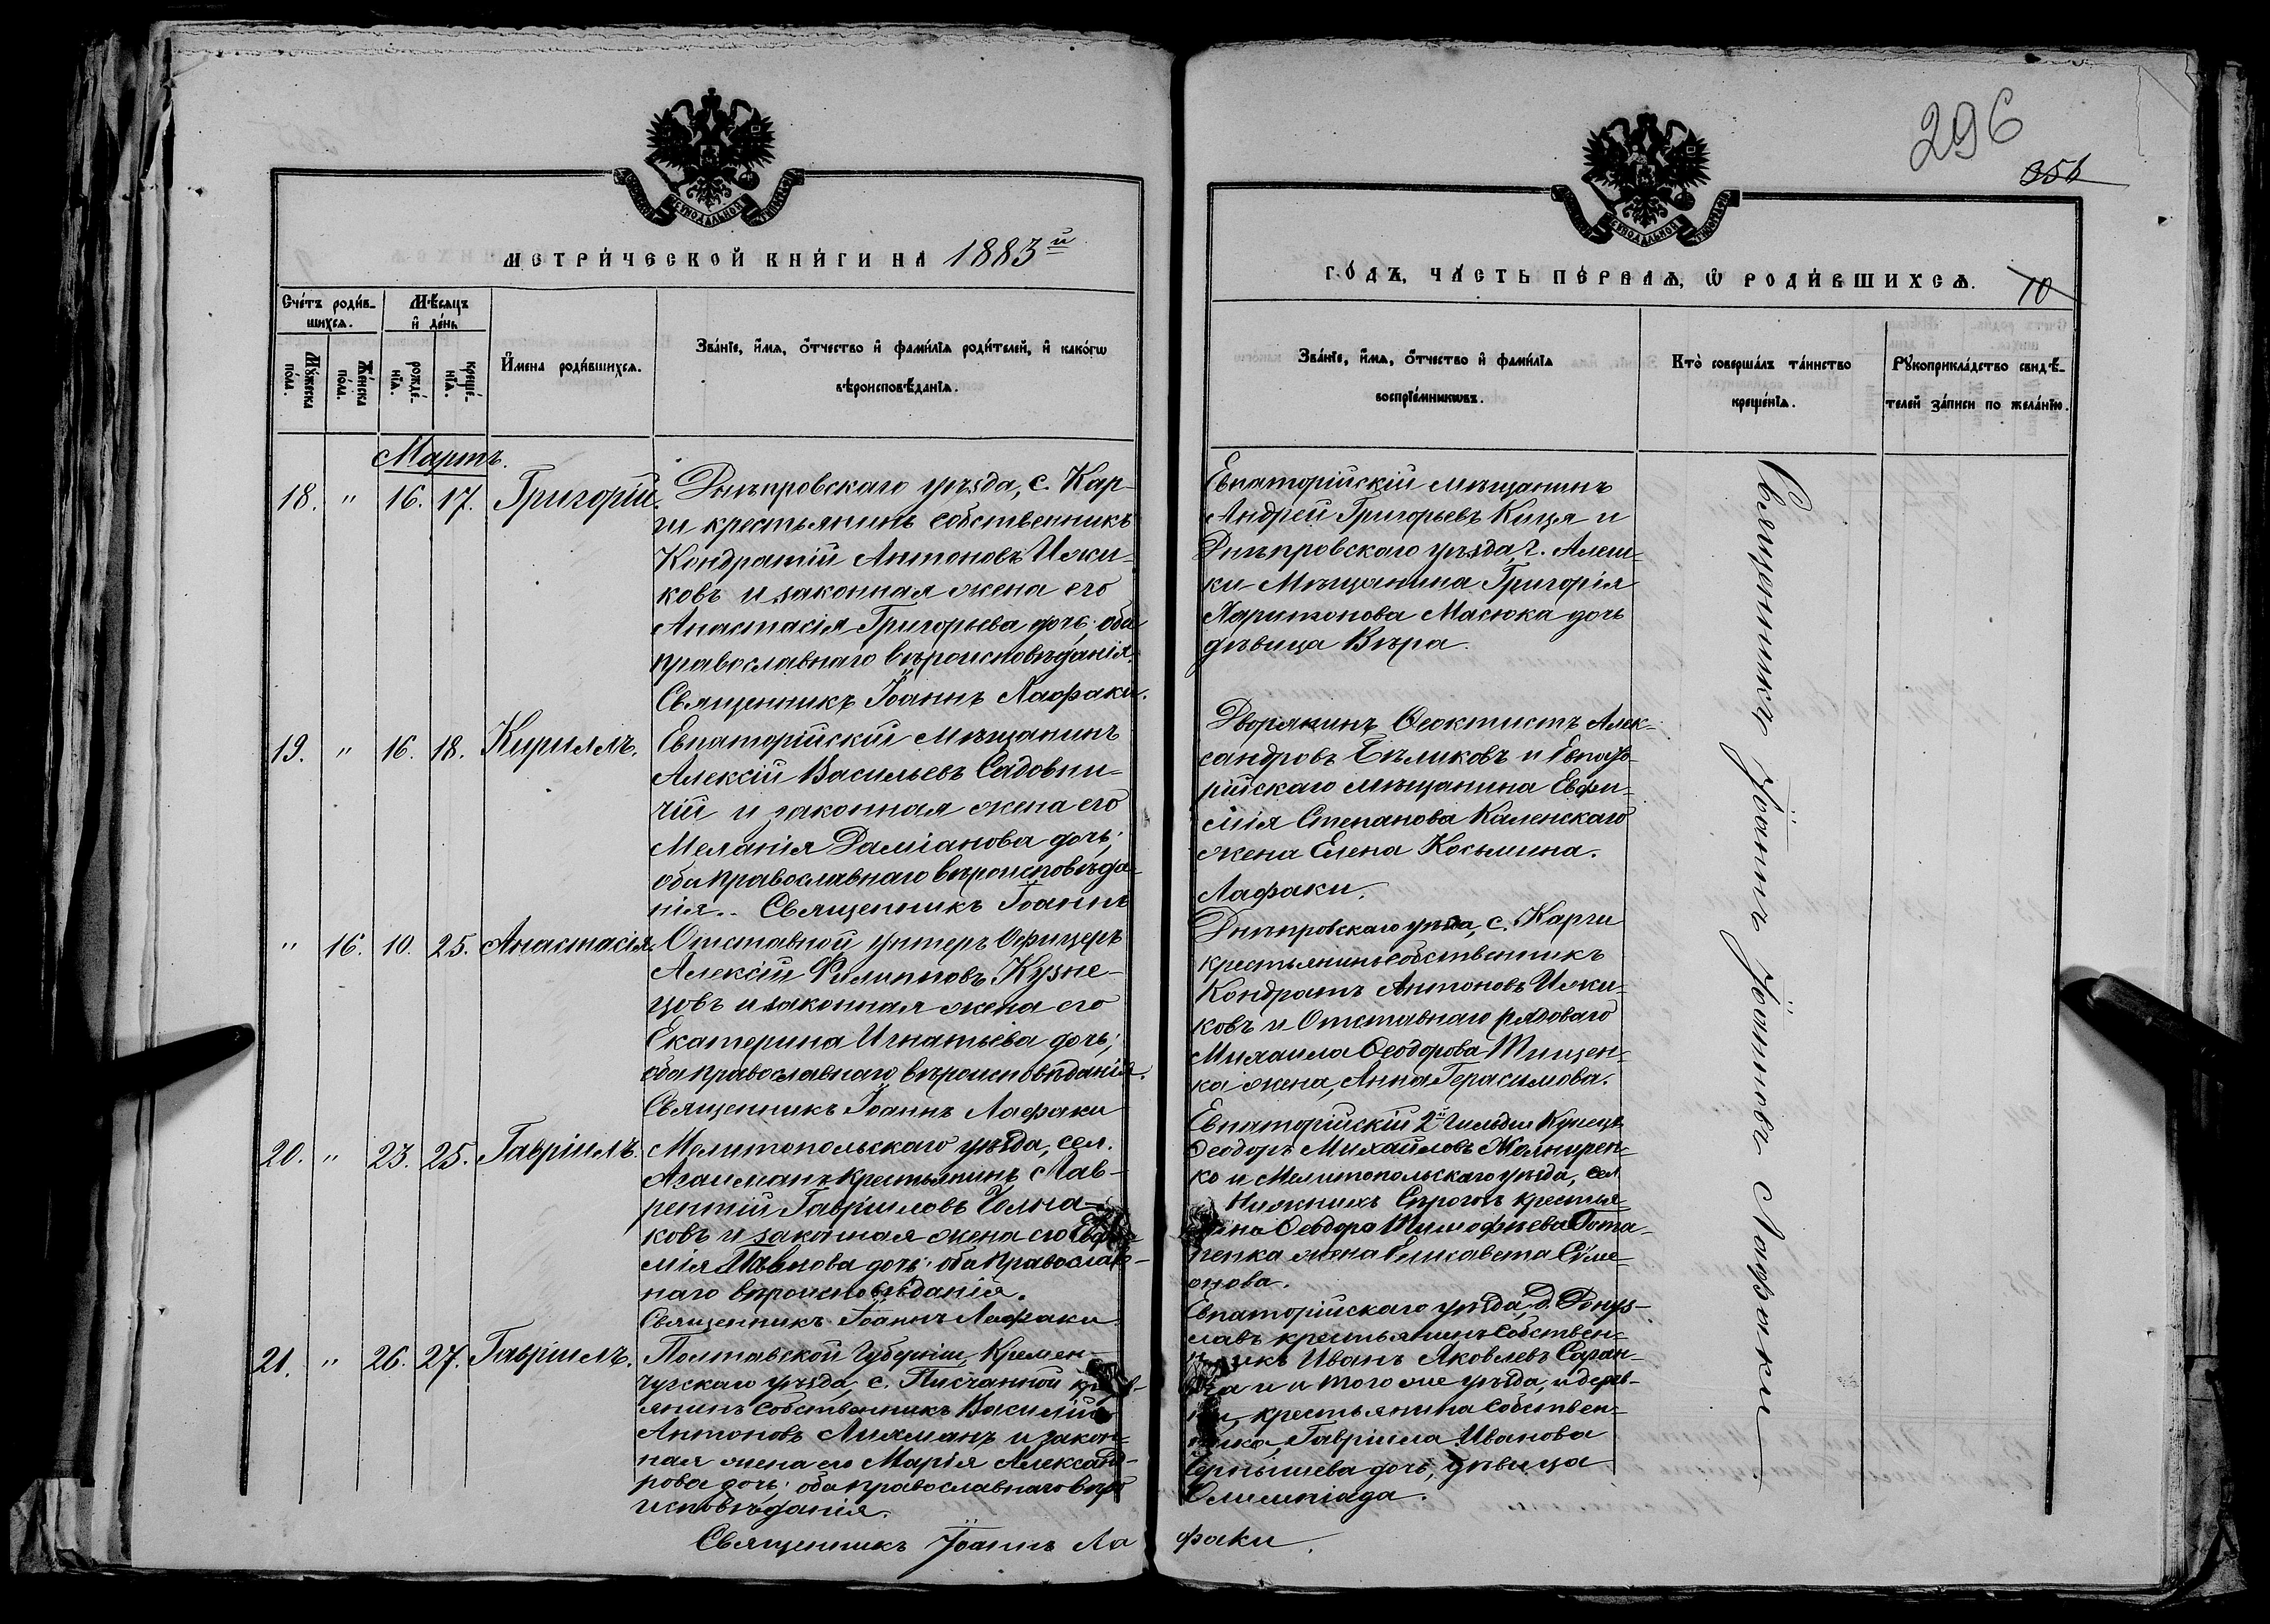 296
351
МЕТРИ́ЧЕСКОЙ КНИ́ГИ НА 1883й
ГО́ДЪ, ЧА́СТЬ ПЕ́РВАѦ, Ѡ РОДИ́ВШИХСѦ.
10
Сче́тъ роди́в-
шихсѧ.
Мѣ́сѧцъ
и҆ де́нь
Мꙋ́жеска
по́ла.
Же́нска
по́ла.
рожде́-
нїѧ.
креще́-
нїѧ.
И҆мена роди́вшихсѧ.
Зва́нїе, и҆́мѧ, ѻ҆́тчество и҆ фами́лїѧ роди́телей, и҆ како́гѡ
вѣроисповѣ́данїѧ.
Зва́нїе, и҆́мѧ, ѻ҆́тчество и҆ фами́лїѧ
воспрїе́мникѡвъ.
Кто̀ соверша́лъ та́инство
креще́нїѧ.
Рꙋкоприкла́дство свидѣ́-
телей за́писи по жела́нїю.
Мартъ.
18. " 16. 17. Григорій.
Днѣпровскаго уѣзда, с. Кар-
ги крестьянинъ собственникъ
Кондратій Антоновъ Ижи-
ковъ и законная жена его
Анастасія Григорьева дочь; оба
православнаго вѣроисповѣданія.
Священникъ Іоаннъ Лафаки.
Евпаторійскій мѣщанинъ
Андрей Григорьевъ Кица и
Днѣпровскаго уѣзда, г. Алеш-
ки Мѣщанина Григорія
Харитонова Масюка дочь
дѣвица Вѣра.
Священникъ Іоаннъ Іоанновъ Лафаки
19. " 16. 18. Кириллъ.
Евпаторійскій мѣщанинъ
Алексій Васильевъ Садовни-
чій и законная жена его
Меланія Даміанова дочь;
оба православнаго вѣроисповѣда-
нія.. Священникъ Іоаннъ
Дворянинъ Ѳеоктистъ Алек-
сандровъ Бѣликовъ и Евпато-
рійскаго мѣщанина Евфи-
мія Степанова Каленскаго
жена Елена Косьмина.
Лафаки.
" 16. 10. 25. Анастасія.
Отставной унтеръ Офицеръ
Алексій Филипповъ Кузне-
цовъ и законная жена его
Екатерина Игнатьева дочь;
оба православнаго вѣроисповѣданія.
Священникъ Іоаннъ Лафаки
Днѣпровскаго уѣзда, с. Карги
крестьянинъ собственникъ
Кондратъ Антоновъ Ижи-
ковъ и Отставнаго рядоваго
Михаила Ѳеодорова Тищен-
ка жена, Анна Герасимова.
20. " 23. 25. Гавріилъ.
Мелитопольскаго уѣзда, сел.
Агаиманъ крестьянинъ Лав-
рентій Гавриловъ
ковъ и законная жена его
мія дочь; оба православ-
наго вѣроисповѣданія.
Священникъ Іоаннъ Лафаки
Евпаторійскій 2й гильдіи Купецъ
Ѳеодоръ Михайловъ
ко и Мелитопольскаго уѣзда, сел.
Нижнихъ Сѣрогозъ крестья-
нина Ѳеодора Тимофѣева Пота-
пенка жена Елисавета Симе-
онова.
21. " 26. 27. Гавріилъ.
Полтавской Губерніи, Кремен-
чугскаго уѣзда, с. Писчанной
янинъ собственникъ Василій
Антоновъ Лихманъ и закон-
ная жена его Марія Александ-
рова дочь; оба православнаго вѣро-
исповѣданія.
Евпаторійскаго уѣзда, д. Донуз-
лавъ крестьянинъ собствен-
никъ Иванъ Яковлевъ
и того же уѣзда, и дерев-
ни, крестьянина собствен-
ника, Гавріила Иванова
Чернышева дочь, дѣвица
Олимпіада.
Священникъ Іоаннъ Ла факи.